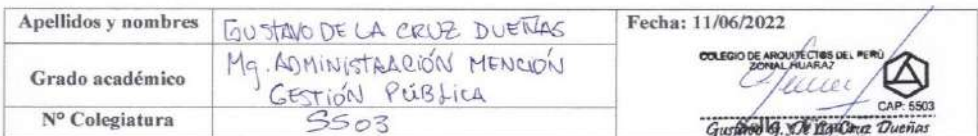 Apellidos y nombres
GUSTAVO DE LA CRUZ DUEÑAS
Fecha: 11/06/2022
Grado académico
Mg. ADMINISTRACIÓN MENCIÓN
GESTIÓN PÚBLICA
COLEGIO DE ARQUITECTOS DEL PERÚ
ZONAL HUARAZ
CAP: 5503
N° Colegiatura
5503
Cruz Dueñas